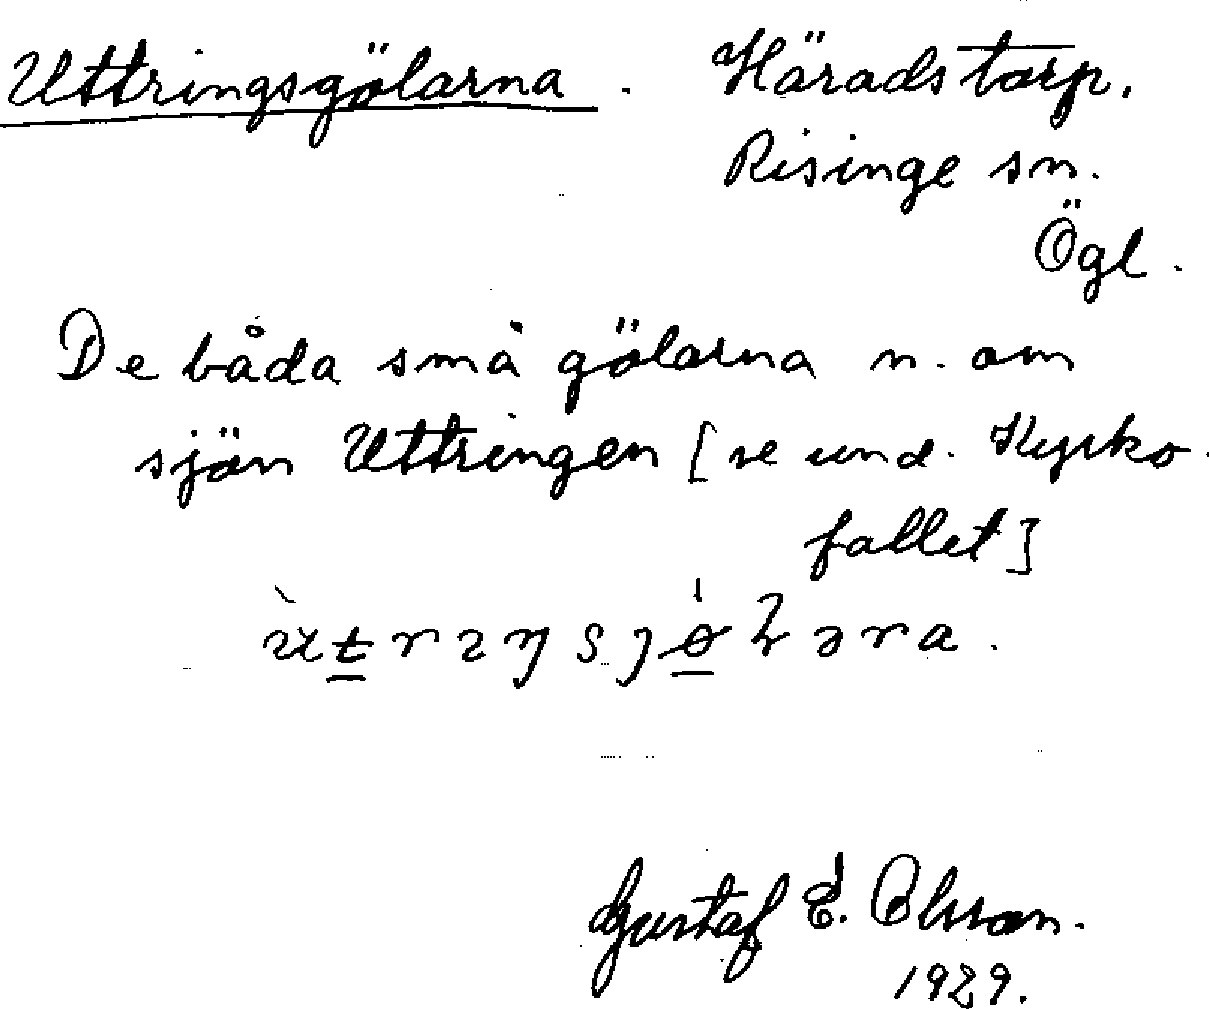 Uttringsgölarna. Häradstorp.
Risinge sn.
Ögl.
De båda små gölarna n. om
sjön Uttringen [se und. Kyrko-
fallet]
Gustaf E. Olsson.
1929.